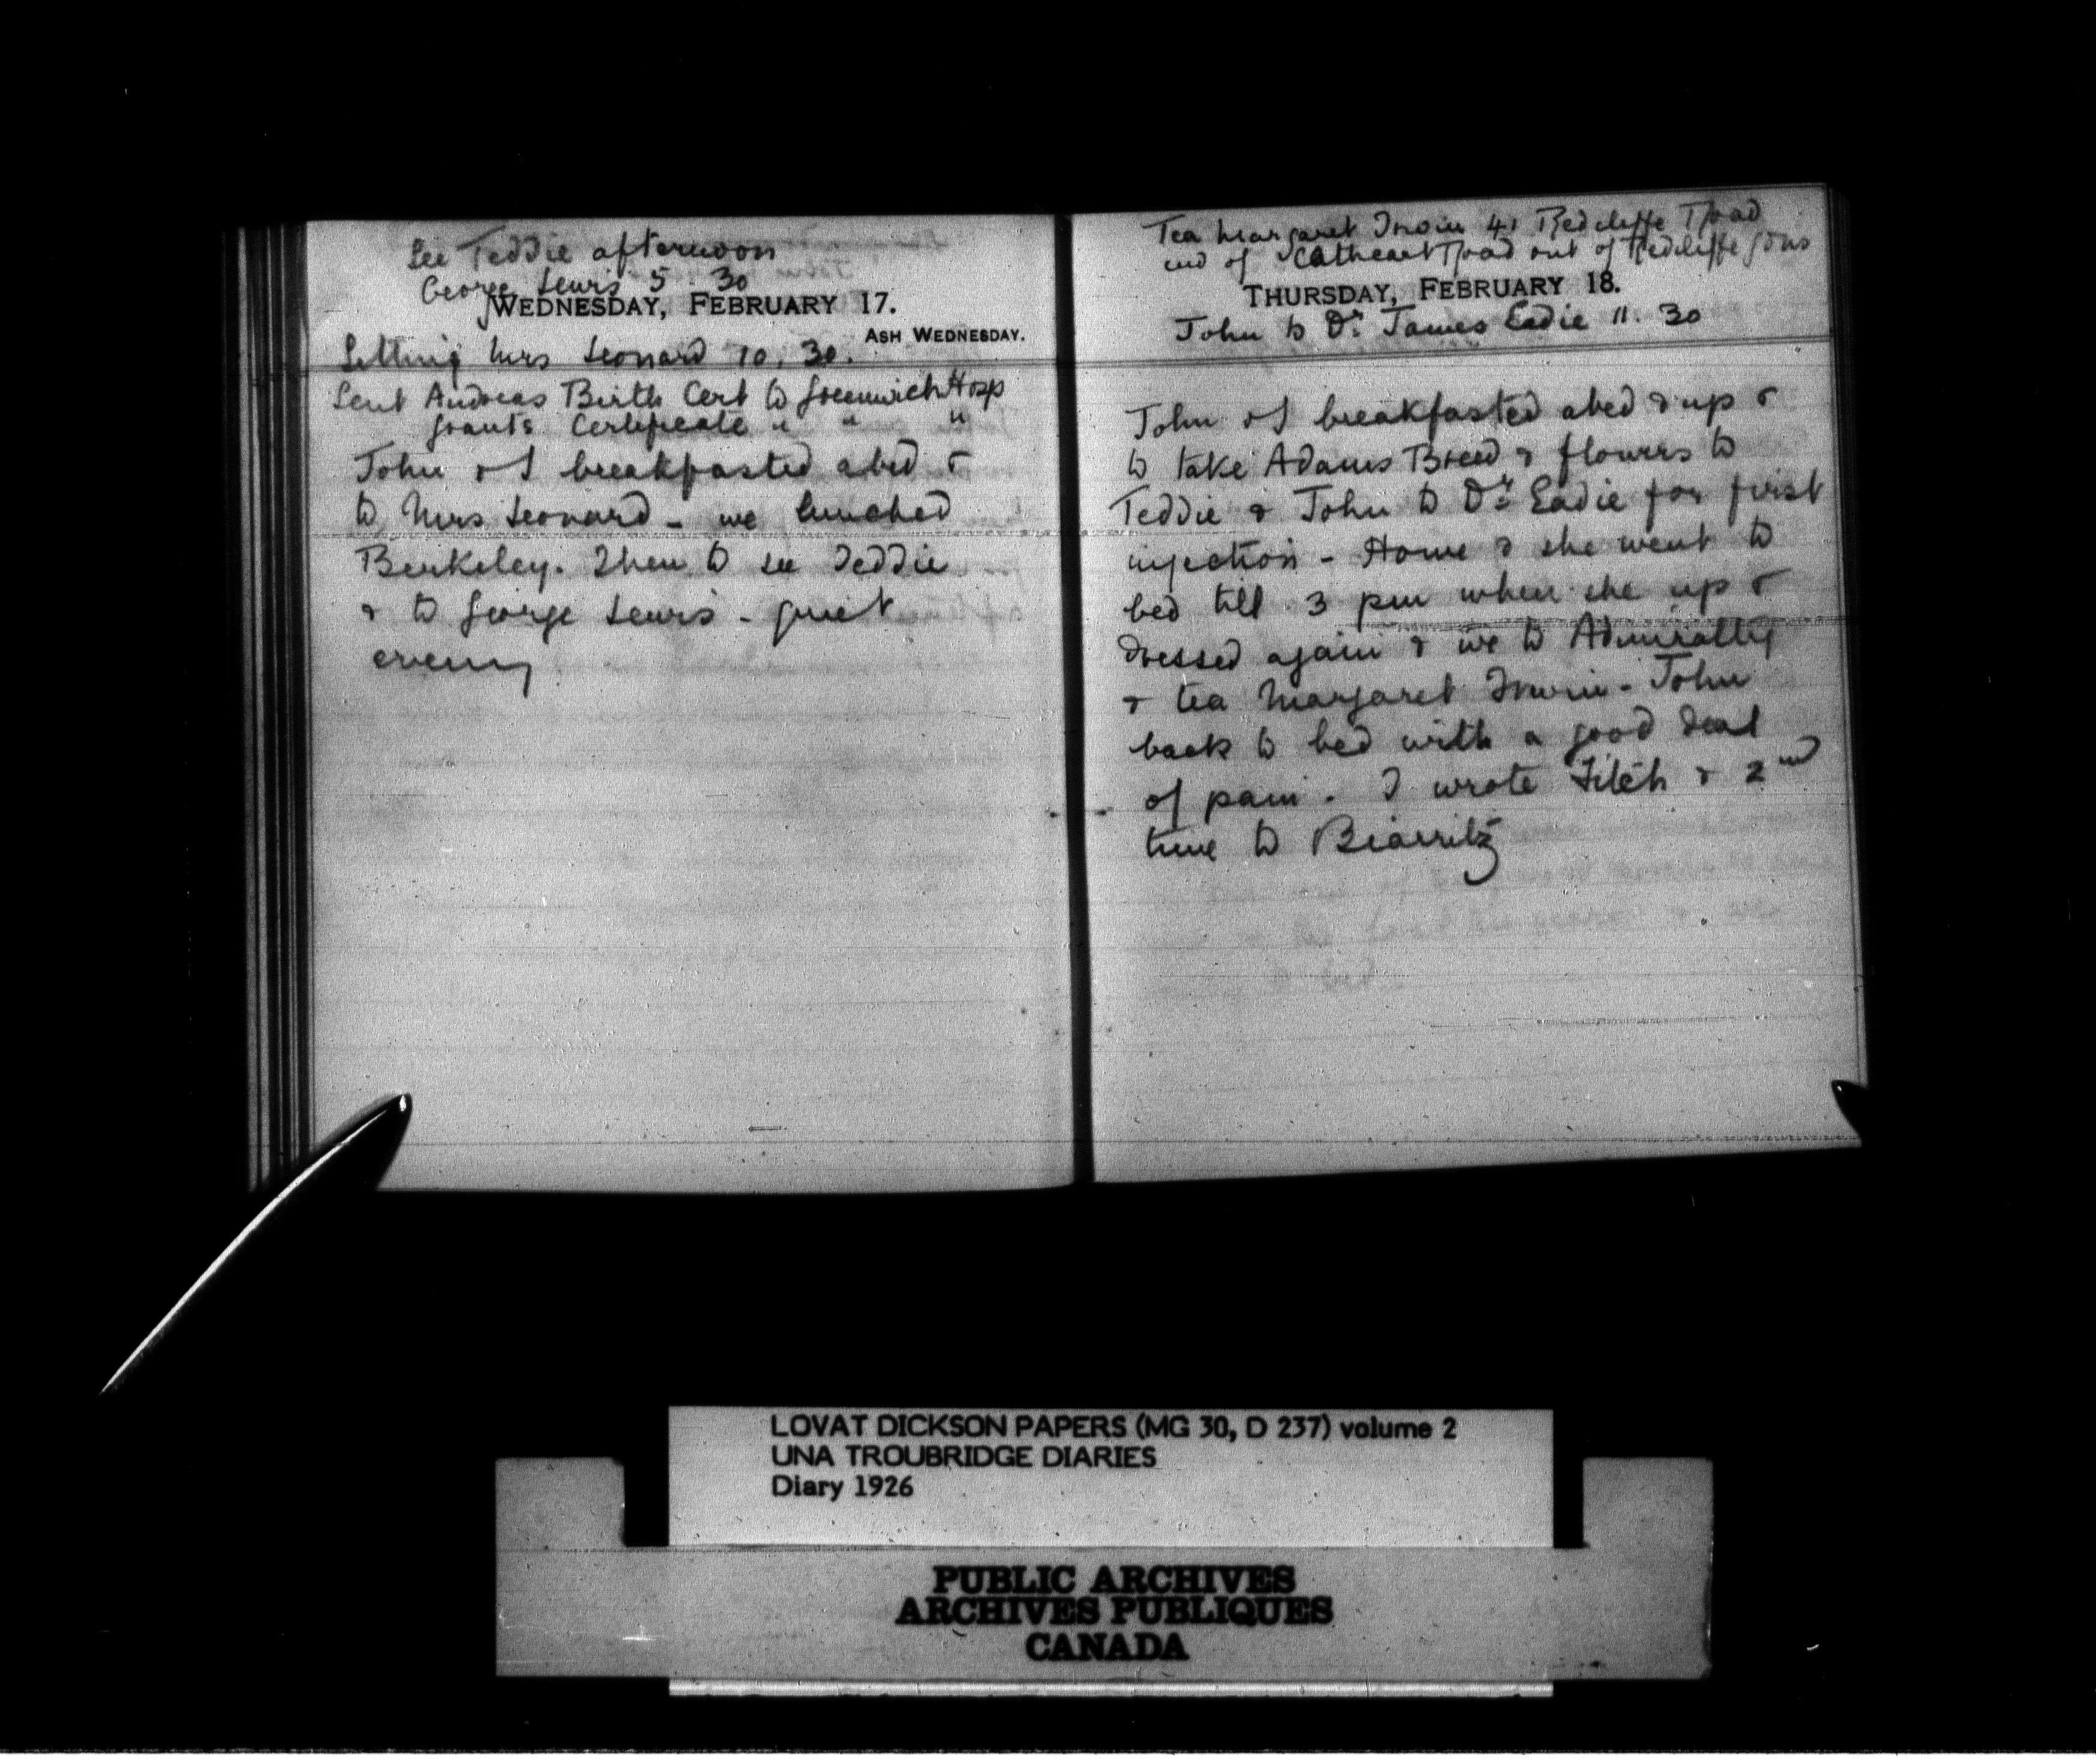 See Teddie afternoon
George Lewis 5.30
WEDNESDAY, FEBRUARY 17.
ASH WEDNESDAY.
Sitting Mrs Leonard 10.30.
Sent Andreas Birth Cert to Greenwich Hosp
Grants Certificate " " "
John & I breakfasted abed &
to Mrs Leonard - we lunched
Berkeley. Then to see Teddie
& to George Lewis - quiet
evening
Tea Margaret Irwin 41 Redcliffe Road
end of Cathcart Road out of Redcliffe Gdns
THURSDAY, FEBRUARY 18.
John to Dr James Eadie 11.30
John & I breakfasted abed & up &
to take Adams Breed & flowers to
Teddie & John to Dr Eadie for first
injection - Home & she went to
bed till 3 pm when she up &
dressed again & we to Admiralty
& tea Margaret Irwin - John
back to bed with a good deal
of pain. I wrote & 2nd
time to Biarritz
LOVAT DICKSON PAPERS (MG 30, D 237) volume 2
UNA TROUBRIDGE DIARIES
Diary 1926
PUBLIC ARCHIVES
ARCHIVES PUBLIQUES
CANADA